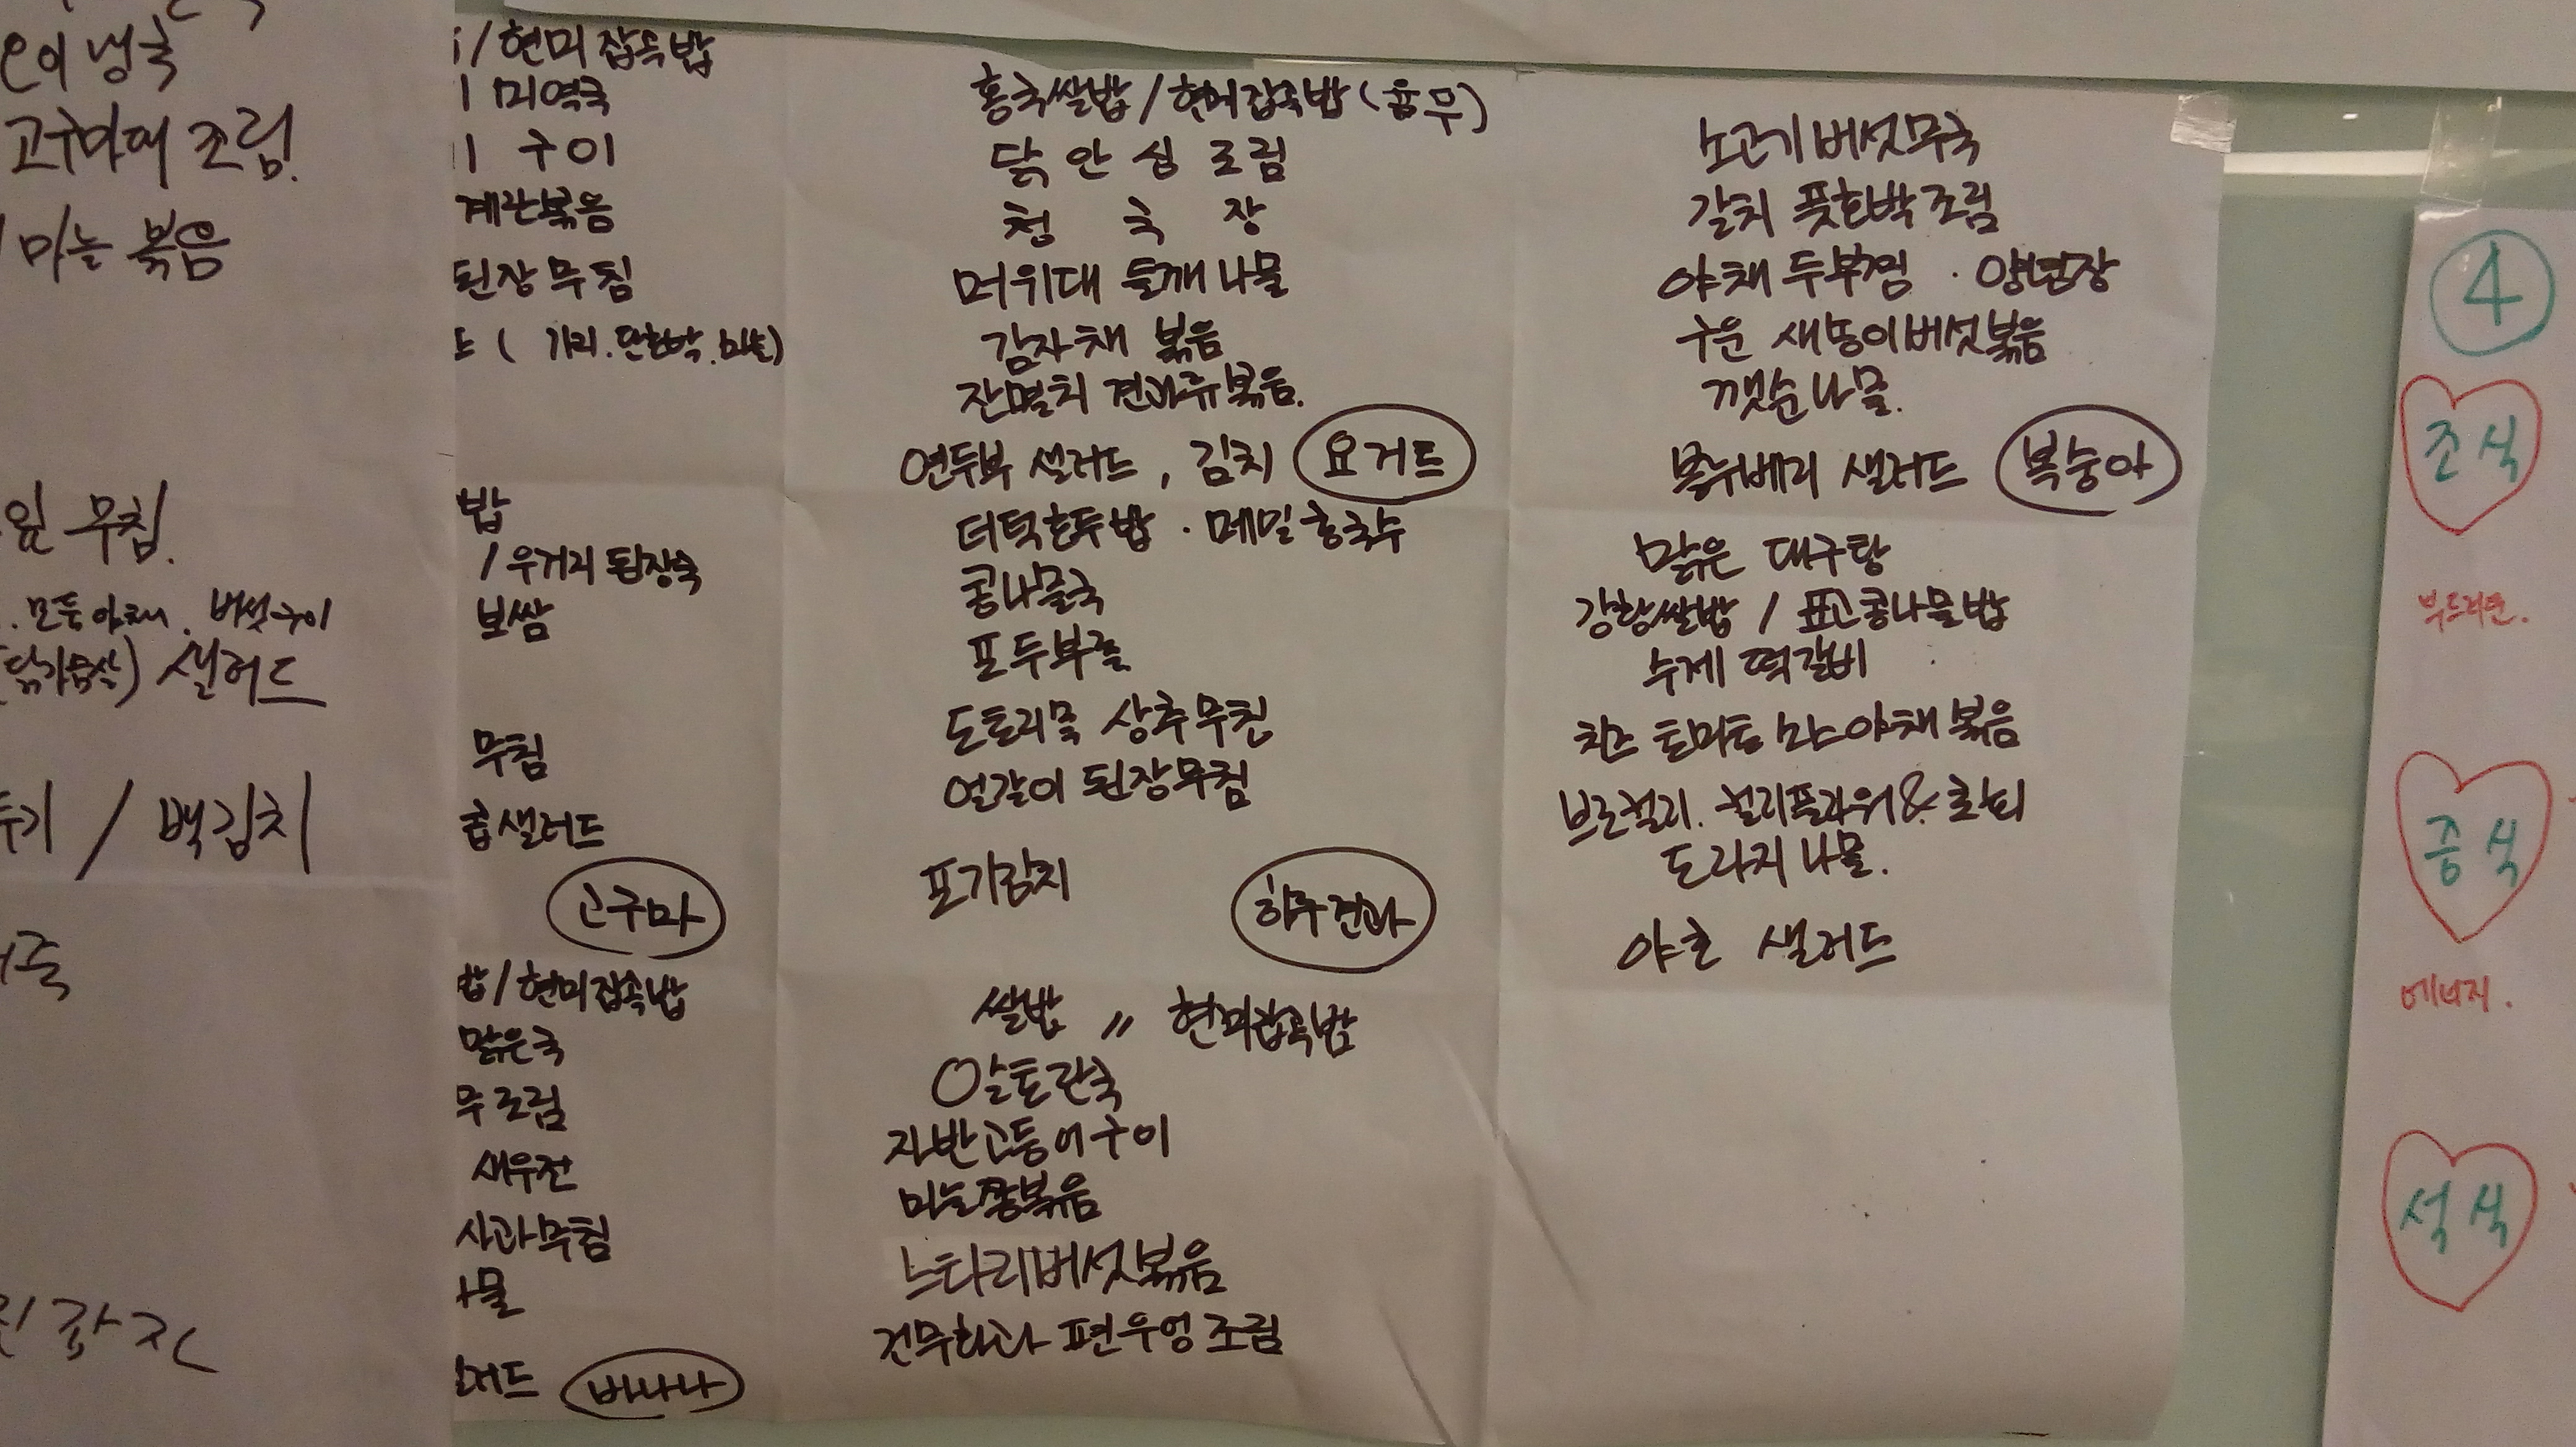 이 냉국
고구마대 조림.
마늘 볶음
무침.
모둠야채. 버섯구이
(닭가슴살) 샐러드
/ 백김치
/ 현미잡곡밥
미역국
구이
계란볶음
된장무침
단호박. 마늘)
밥
/ 우거지 된장국
보쌈
무침
샐러드
고구마
밥 / 현미잡곡밥
맑은국
무조림
새우전
사과무침
바나나
홍국쌀밥 / 현미잡곡밥 (율무)
닭안심조림
청국장
머위대 들깨나물
감자채 볶음
잔멸치 견과류볶음.
연두부 샐러드, 김치 요거트
더덕호두밥 · 메밀국수
콩나물국
포두부쌈
도토리묵 상추무침
얼갈이 된장무침
포기김치
하루견과
쌀밥 // 현미잡곡밥
알토란국
자반고등어구이
마늘쫑볶음
느타리버섯볶음
건무화과 편우엉조림
소고기버섯무국
갈치 풋호박조림
야채두부찜 · 양념장
구운 새송이버섯볶음
깻순나물.
블루베리 샐러드 복숭아
맑은 대구탕
강황쌀밥 / 표고콩나물밥
수제 떡갈비
치즈 토마토 야채볶음
브로컬리. 컬리플라워 & 초회
도라지나물.
야초 샐러드
4
조식
부드러운.
중식
에너지.
석식